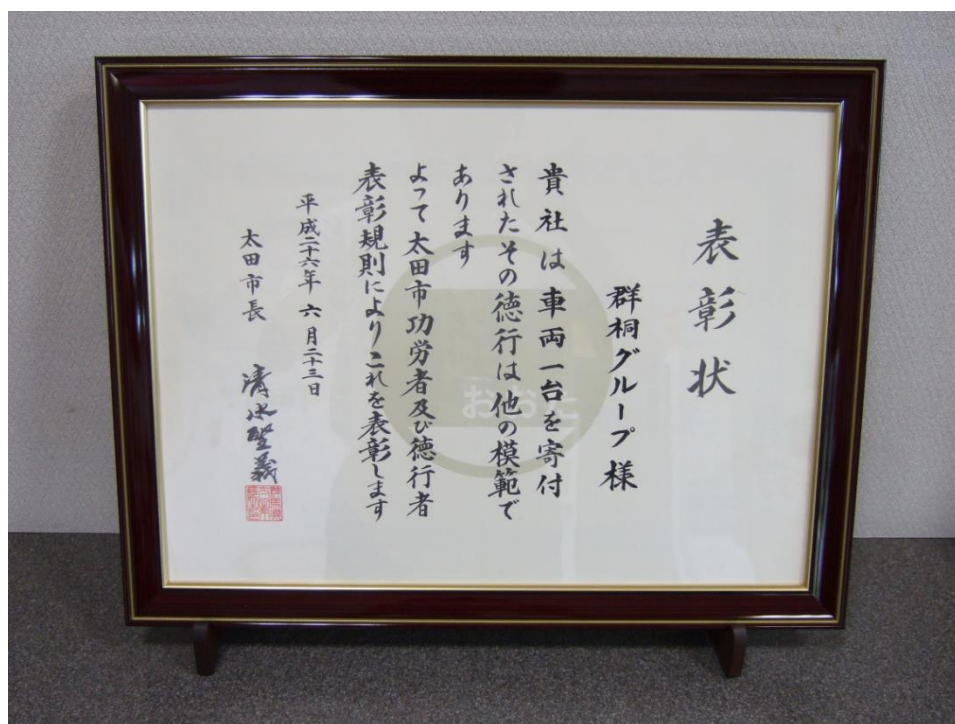 表彰状
群桐グループ様
貴社は車両一台を寄付
されたその徳行は他の模範で
あります
よって太田市功労者及び徳行者
表彰規則によりこれを表彰します
平成二十六年六月二十三日
太田市長 清水聖義
おおた